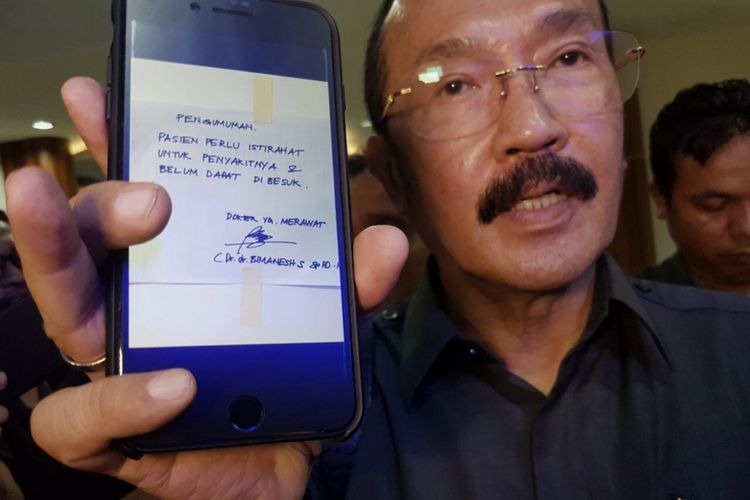 PENGUMUMAN.
PASIEN PERLU ISTIRAHAT
UNTUK PENYAKITNYA &
BELUM DAPAT DI BESUK.
DOKTER YG. MERAWAT
( Dr. dr. BIMANESH.S SpPD.